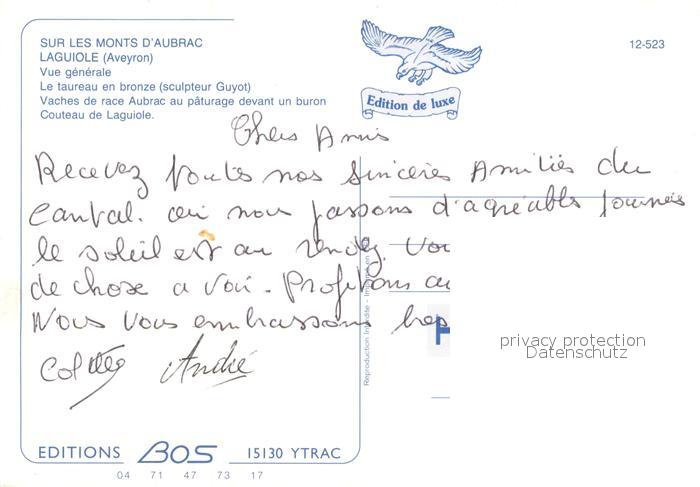 SUR LES MONTS D'AUBRAC
LAGUIOLE (Aveyron)
Vue générale
Le taureau en bronze (sculpteur Guyot)
Vaches de race Aubrac au pâturage devant un buron
Couteau de Laguiole.
12-523
Edition de luxe
Chers Amis
Recevez toutes nos sincères Amitiés du
Cantal. où nous passons d'agréables journées
le soleil est au rendez. Vou
de chose a voir. Profitons au
Nous vous embrassons
André
Reproduction Interdite
privacy protection
Datenschutz
EDITIONS BOS 15130 YTRAC
04 71 47 73 17